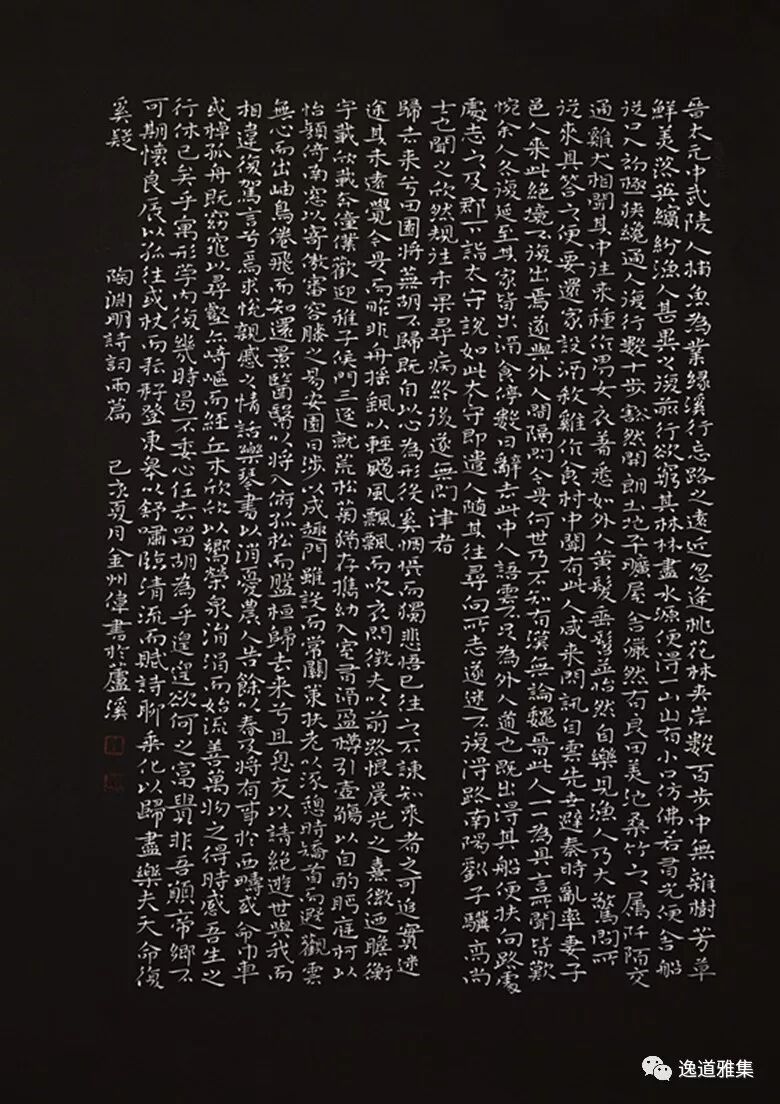 晉太元中武陵人捕魚為業緣溪行忘路之遠近忽逢桃花林夾岸數百步中無雜樹芳草
鮮美落英繽紛漁人甚異之復前行欲窮其林林盡水源便得一山山有小口仿佛若有光便舍船
從口入初極狹纔通人復行數十步豁然開朗土地平曠屋舍儼然有良田美池桑竹之属阡陌交
通雞犬相聞其中往來種作男女衣著悉如外人黃髮垂髫並怡然自樂見漁人乃大驚問所
從來具答之便要還家設酒殺雞作食村中聞有此人咸來問訊自雲先世避秦時亂率妻子
邑人來此絕境不復出焉遂與外人間隔問今是何世乃不知有漢無論魏晉此人一一為具言所聞皆歎
惋余人各復延至其家皆出酒食停數日辭去此中人語雲不足為外人道也既出得其船便扶向路處
處志之及郡下詣太守說如此太守即遣人隨其往尋向所志遂迷不復得路南陽劉子驥高尚
士也聞之欣然規往未果尋病終後遂無問津者
歸去來兮田園將蕪胡不歸既自以心為形役奚惆悵而獨悲悟已往之不諫知來者之可追實迷
途其未遠覺今是而昨非舟搖颻以輕颺風飄飄而吹衣問徵夫以前路恨晨光之熹微迺瞻衡
宇載欣載奔僮僕歡迎稚子候門三逕就荒松菊猶存攜幼入室有酒盈樽引壺觴以自酌眄庭柯以
怡顏倚南窓以寄傲審容膝之易安園日涉以成趣門雖設而常關策扶老以流憩時矯首而遐觀雲
無心而出岫鳥倦飛而知還景翳翳以將入府孤松而盤桓歸去來兮且息交以請絕遊世與我而
相違復駕言兮焉求悅親戚之情話樂琴書以消憂農人告餘以春及將有事於西疇或命巾車
或棹孤舟既窈窕以尋壑亦崎嶇而經丘木欣欣以嚮榮泉涓涓而始流善萬物之得時感吾生之
行休已矣乎寓形宇內復幾時曷不委心任去留胡為乎遑遑欲何之富貴非吾願帝鄉不
可期懷良辰以孤往或杖而耘耔登東皋以舒嘯臨清流而賦詩聊乘化以歸盡樂夫天命復
奚疑 陶淵明詩詞兩篇 己亥夏月金州偉書於蘆溪
逸道雅集